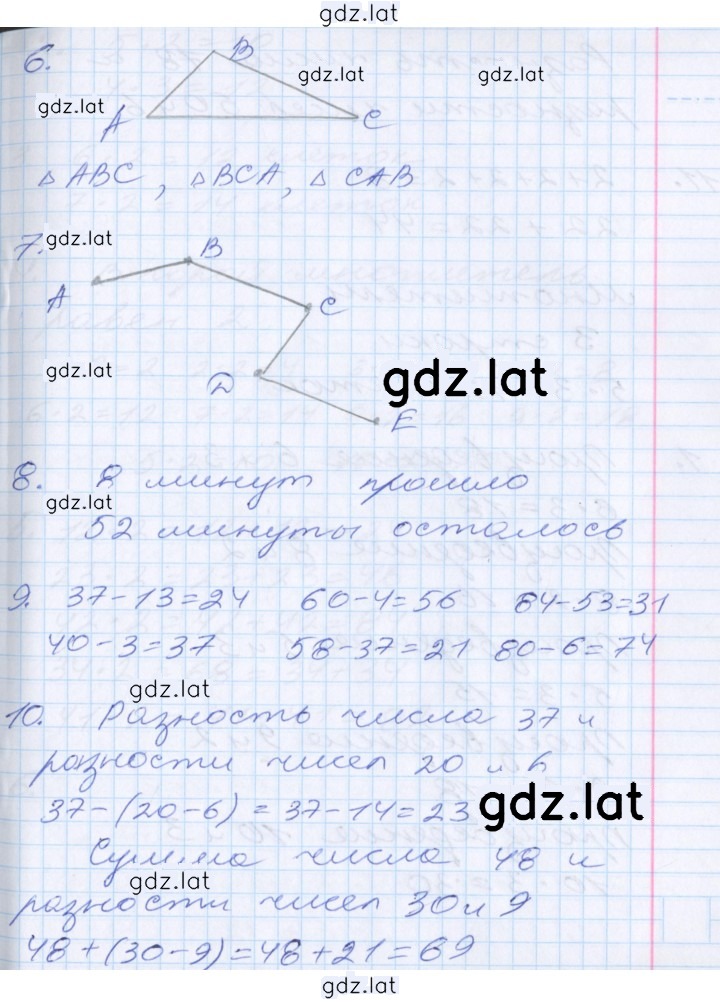 gdz.lat
6.
B
gdz.lat
gdz.lat
gdz.lat
A
C
△ ABC, △ BCA, △ CAB
7.
gdz.lat
B
A
C
gdz.lat
D
gdz.lat
E
8. 8 минут прошло
gdz.lat
52 минуты осталось
9. 37-13=24 60-4=56 84-53=31
40-3=37 58-37=21 80-6=74
gdz.lat
10. Разность числа 37 и
разности чисел 20 и 6
37-(20-6)=37-14=23
gdz.lat
Сумма числа 48 и
gdz.lat
разности чисел 30 и 9
48+(30-9)=48+21=69
gdz.lat